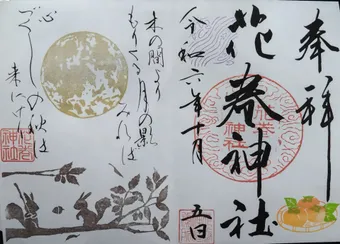 奉拝
花巻神社
令和六年十月
五日
木の間より
もりくる月の影
みれば
心
づくしの秋は
来にけり